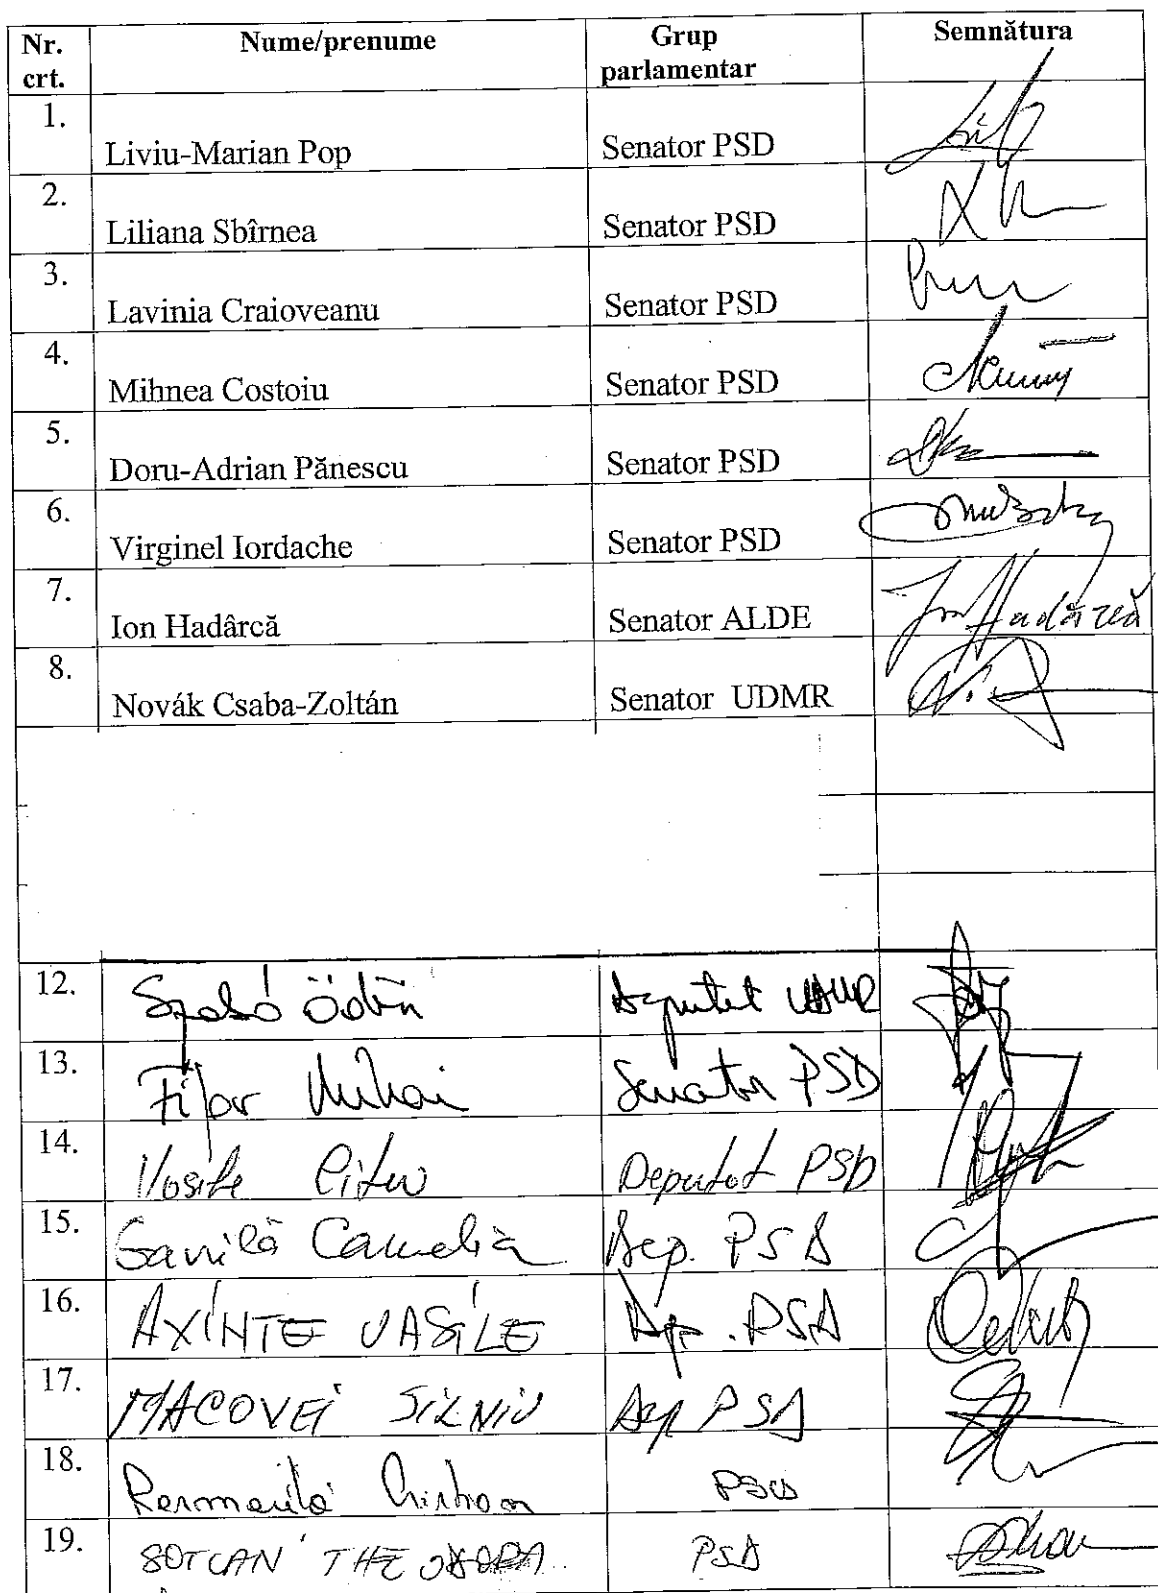 Nr. crt. Nume/prenume Grup parlamentar Semnătura
1. Liviu-Marian Pop Senator PSD
2. Liliana Sbîrnea Senator PSD
3. Lavinia Craioveanu Senator PSD
4. Mihnea Costoiu Senator PSD
5. Doru-Adrian Pănescu Senator PSD
6. Virginel Iordache Senator PSD
7. Ion Hadârcă Senator ALDE Ion Hadârcă
8. Novák Csaba-Zoltán Senator UDMR
12. Szabó Ödön Deputat UDMR
13. Fifor Mihai Senator PSD
14. Vasile Cîtu Deputat PSD
15. Gavrilă Camelia Dep. PSD
16. AXINTE VASILE Dep. PSD
17. MACOVEI SILVIU Dep PSD
18. PSD
19. SOTCAN THEODORA PSD